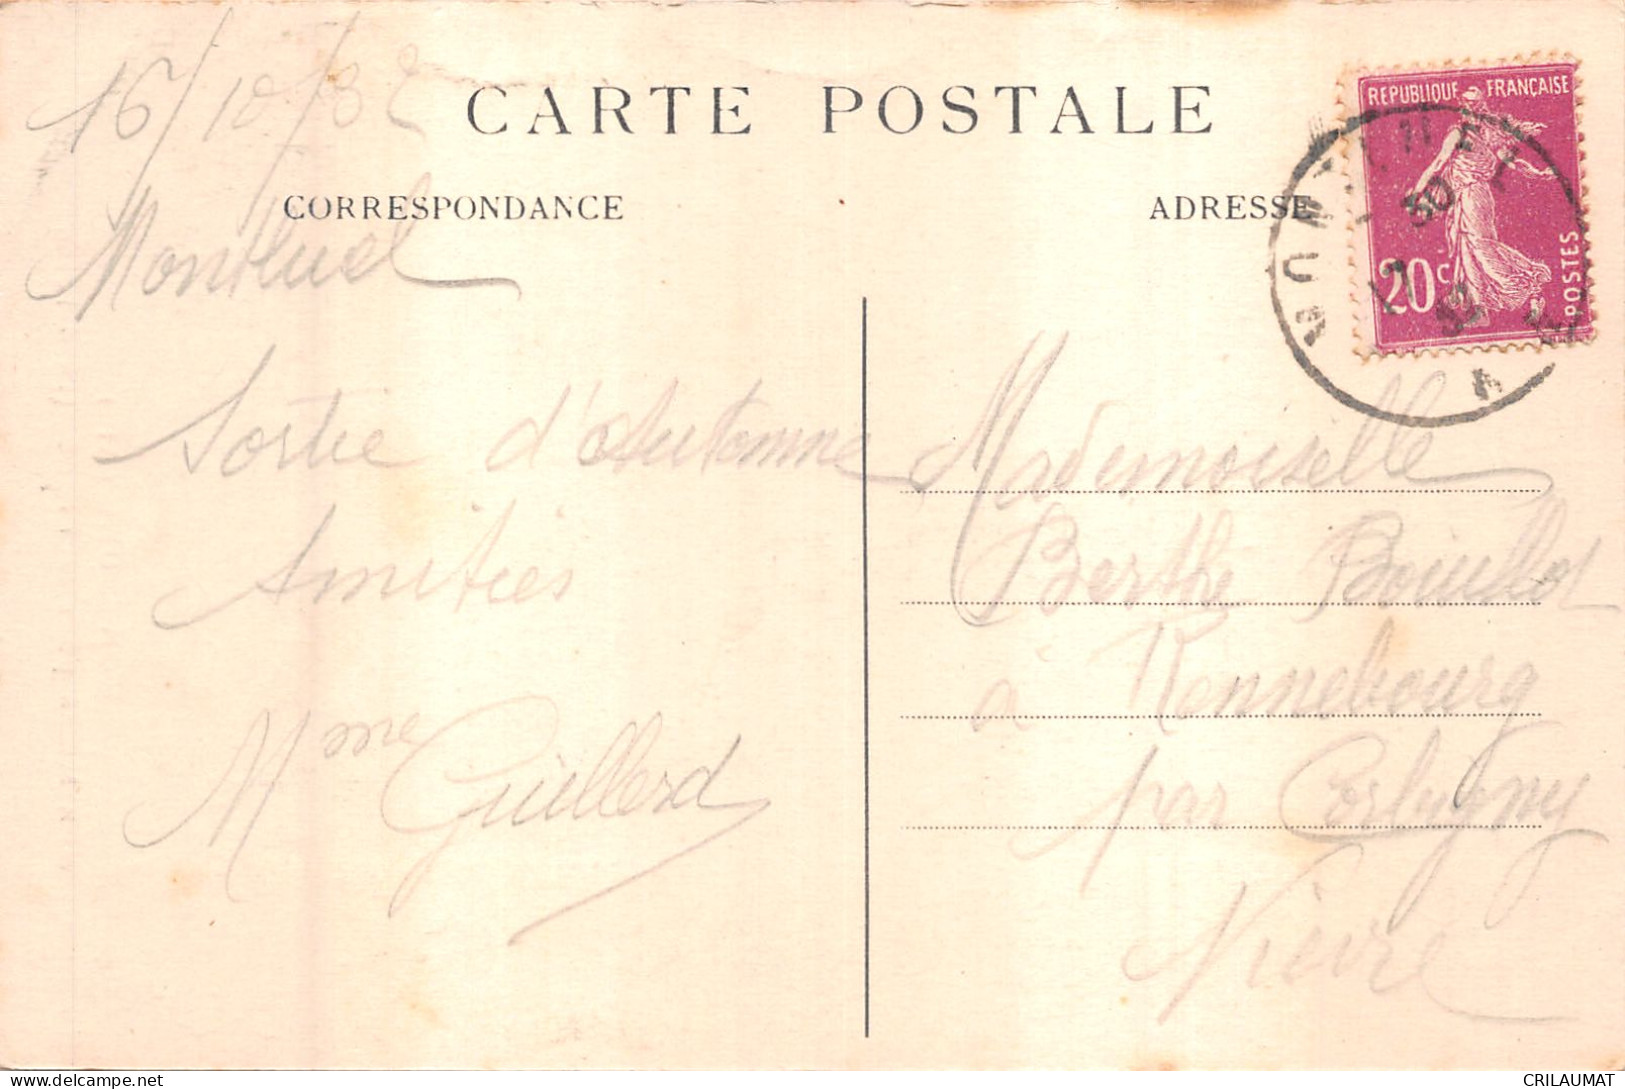 16/10/32
CARTE POSTALE
CORRESPONDANCE
ADRESSE
REPUBLIQUE FRANÇAISE
20c
POSTES
MONTLUEL
Montluel
Sortie d'Automne
Amitiés
Mme Guillerd
Mademoiselle
Berthe Bouillot
à Rennebourg
par Corbigny
Nièvre
CRILAUMAT